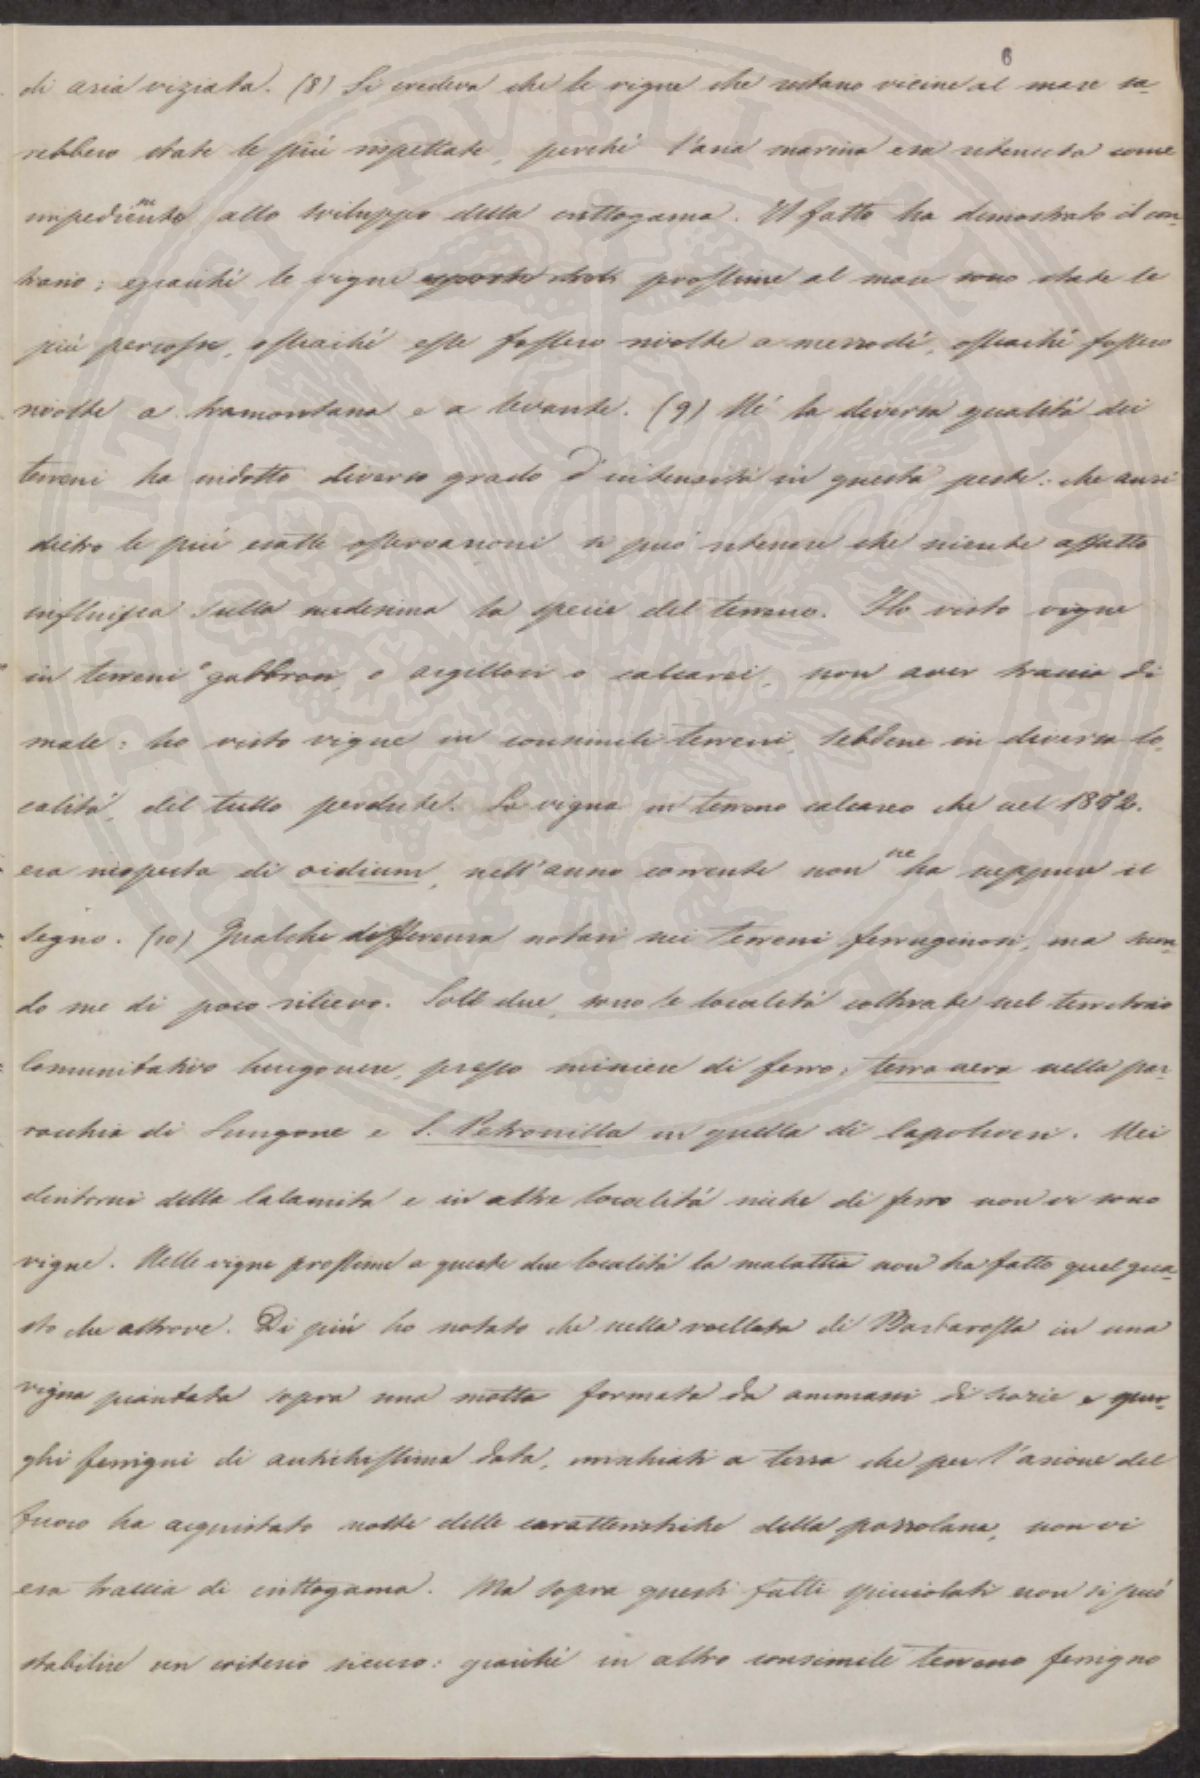 6
di aria viziata. (8) Si credeva che le vigne che restano vicine al mare sa-
rebbero state le più rispettate, perchè l'aria marina era ritenuta come
impediente allo sviluppo della crittogama. Il fatto ha dimostrato il con-
trario; egiacchè le vigne prossime al mare sono state le
più percosse, ossiachè esse fossero rivolte a mezzodì, ossiachè fossero
rivolte a tramontana e a levante. (9) Nè la diversa qualità dei
terreni ha indotto diverso grado d'intensità in questa peste: che anzi
dietro le più esatte osservazioni si può ritenere che niente affatto
influisca sulla medesima la specie del terreno. Ho visto vigne
in terreni o gabbrosi, o argillosi o calcarei, non aver traccia di
male: ho visto vigne in consimili terreni, sebbene in diversa lo-
calità, del tutto perdute. La vigna in terreno calcareo che nel 1852.
era ricoperta di oidium, nell'anno corrente non ne ha neppure il
segno. (10) Qualche differenza notasi nei terreni ferruginosi, ma secon-
do me di poco rilievo. Sole due sono le località coltivate nel territorio
Comunitativo lungonese, presso miniere di ferro; terra nera nella par-
rocchia di Lungone e S. Petronilla in quella di Capoliveri. Nei
dintorni della Calamita e in altre località ricche di ferro non vi sono
vigne. Nelle vigne prossime a queste due località la malattia non ha fatto quel gua-
sto che altrove. Di più ho notato che nella vallata di Barbarossa in una
vigna piantata sopra una motta formata da ammassi di scorie e spur-
ghi ferrigni di antichissima data, mischiati a terra che per l'azione del
fuoco ha acquistato molte delle caratteristiche della pozzolana, non vi
era traccia di crittogama. Ma sopra questi fatti spicciolati non si può
stabilire un criterio sicuro: giacchè in altro consimile terreno ferrigno